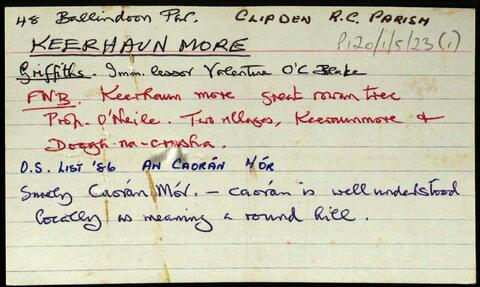 48 Ballindoon Par. CLIFDEN R.C. PARISH
P120/1/5/23(1)
KEERHAUN MORE
Griffiths. Imm. lessor Valentine O'C Blake
FNB. Keerhaun more great rowan tree
Prop. O'Neile. Two villages, Keeraunmore &
Doogh-na-crusha.
O.S. LIST '86 AN CAORÁN MÓR
Surely Caorán Mór. – caorán is well understood
locally as meaning a round hill.